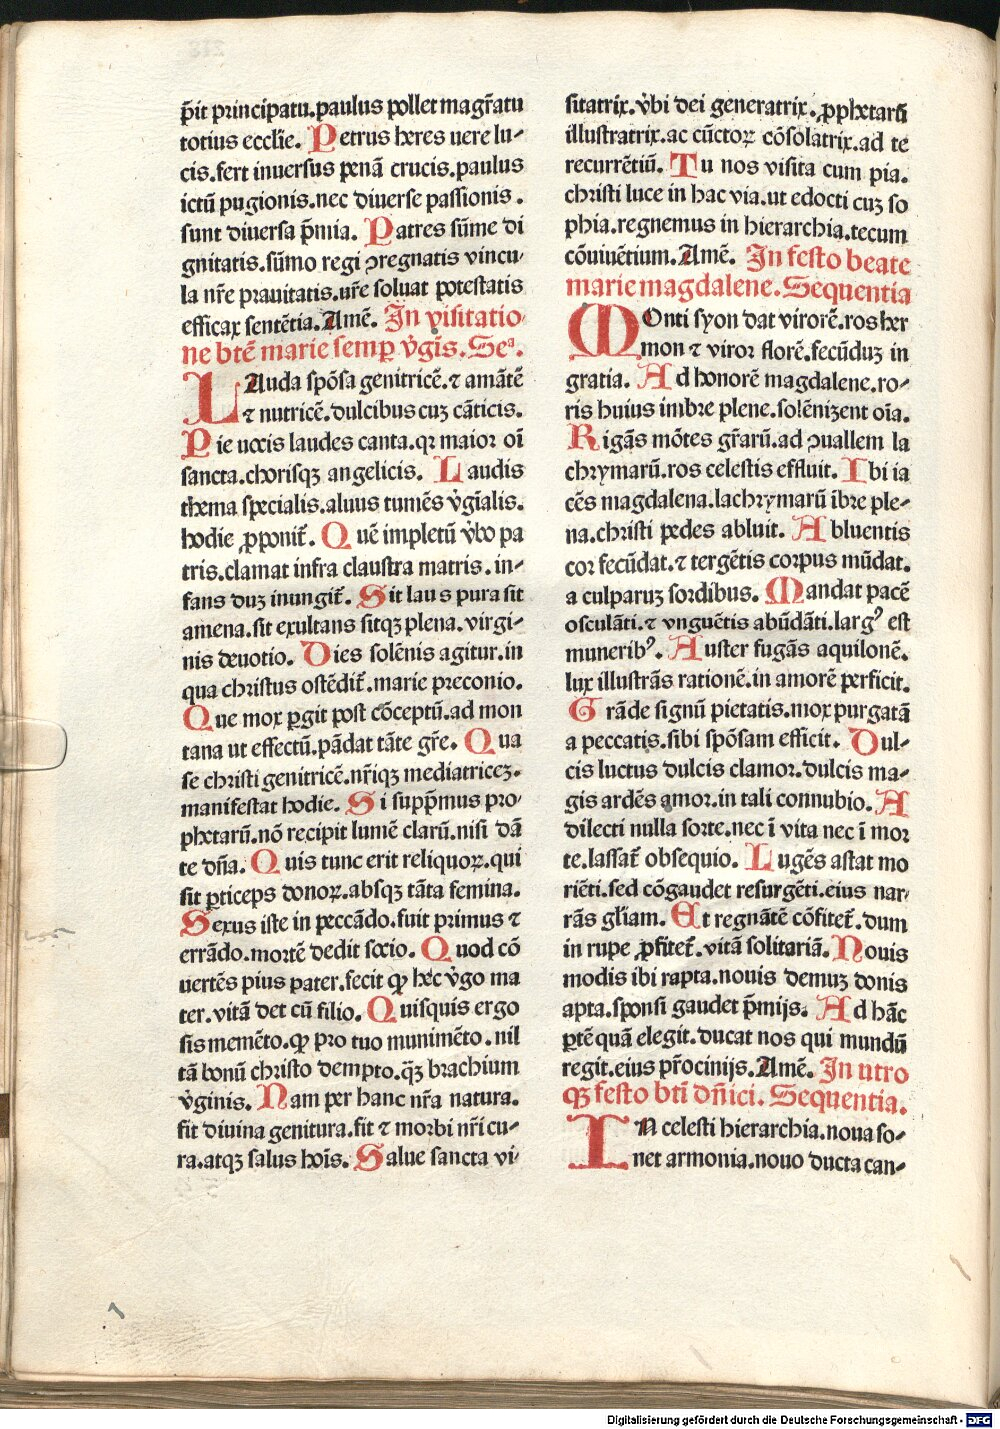 p̄it principatu.paulus pollet magr̄atu
totius eccl̄ie. Petrus heres uere lu-
cis.fert inuersus penā crucis.paulus
ictū pugionis.nec diuerse passionis.
sunt diuersa p̄mia. Patres sūme di
gnitatis.sūmo regi ꝯregnatis vincu-
la nr̄e prauitatis.ur̄e soluat potestatis
efficax sentētia.Amē. In visitatio-
ne btē marie semꝑ v̄gīs.Seᵃ.
LAuda spōsa genitricē.⁊ amātē
⁊ nutricē.dulcibus cuꝫ cāticis.
Pie uocis laudes canta.qꝛ maior oī
sancta.chorisqꝫ angelicis. Laudis
thema specialis.aluus tumēs v̄gīalis.
hodie ꝓponit̄. Quē impletū v̄bo pa
tris.clamat infra claustra matris.in-
fans duꝫ inungit̄. Sit laus pura sit
amena.sit exultans sitqꝫ plena.virgi-
nis deuotio. Dies solēnis agitur.in
qua christus ostēdit̄.marie preconio.
Que mox ꝑgit post cōceptū.ad mon
tana ut effectū.pādat tāte gr̄e. Qua
se christi genitricē.nr̄iqꝫ mediatriceꝫ.
manifestat hodie. Si supp̄mus pro-
phetarū.nō recipit lumē clarū.nisi dā
te dn̄a. Quis tunc erit reliquoꝝ.qui
sit ꝑticeps donoꝝ.absqꝫ tāta femina.
Sexus iste in peccādo.fuit primus ⁊
errādo.mortē dedit socio. Quod cō
uertēs pius pater.fecit ꝙ hec v̄go ma
ter.vitā det cū filio. Quisquis ergo
sis memēto.ꝙ pro tuo munimēto.nil
tā bonū christo dempto.qꝫ̄ brachium
v̄ginis. Nam per hanc nr̄a natura.
fit diuina genitura.fit ⁊ morbi nr̄i cu-
ra.atqꝫ salus hoīs. Salue sancta vi-
sitatrix.v̄bi dei generatrix.ꝓphetarū
illustratrix.ac cūctoꝝ cōsolatrix.ad te
recurrētiū. Tu nos visita cum pia.
christi luce in hac via.ut edocti cuꝫ so
phia.regnemus in hierarchia.tecum
cōuiuētium.Amē. In festo beate
marie magdalene.Sequentia
MOnti syon dat virorē.ros her
mon ⁊ viror florē.fecūduꝫ in
gratia. Ad honorē magdalene.ro-
ris huius imbre plene.solēnizent oīa.
Rigās mōtes gr̄arū.ad ꝯuallem la
chrymarū.ros celestis effluit. Ibi ia
cēs magdalena.lachrymarū ībre ple-
na.christi pedes abluit. Abluentis
cor fecūdat.⁊ tergētis corpus mūdat.
a culparuꝫ sordibus. Mandat pacē
osculāti.⁊ vnguētis abūdāti.largꝰ est
muneribꝰ. Auster fugās aquilonē.
lux illustrās rationē.in amorē perficit.
Grāde signū pietatis.mox purgatā
a peccatis.sibi spōsam efficit. Dul-
cis luctus dulcis clamor.dulcis ma-
gis ardēs amor.in tali connubio. A
dilecti nulla sorte.nec ī vita nec ī mor
te.lassat̄ obsequio. Lugēs astat mo
riēti.sed cōgaudet resurgēti.eius nar-
rās gl̄iam. Et regnātē cōfitet̄.dum
in rupe ꝓfitet̄.vitā solitariā. Nouis
modis ibi rapta.nouis demuꝫ donis
apta.sponsi gaudet p̄mijs. Ad hāc
ꝑtē quā elegit.ducat nos qui mundū
regit.eius pr̄ocinijs.Amē. In utro
qꝫ festo btī dn̄ici. Sequentia.
IN celesti hierarchia.noua so-
net armonia.nouo ducta can-
Digitalisierung gefördert durch die Deutsche Forschungsgemeinschaft - DFG